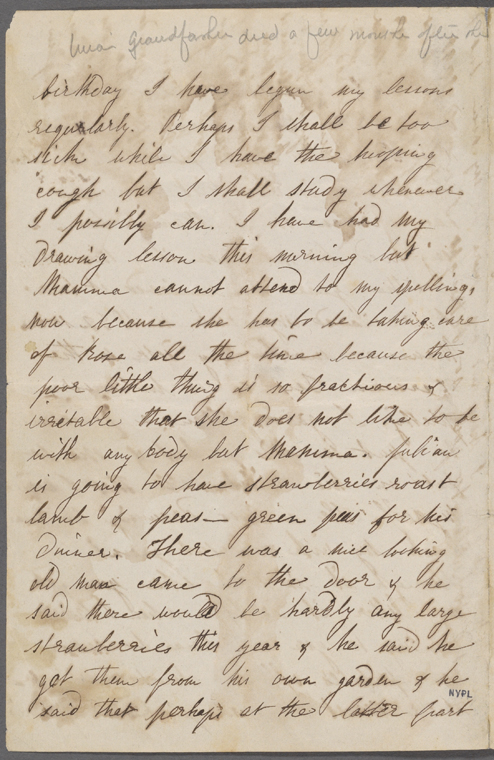 grandfather died a few months after the
birthday I have begun my lessons
regularly. Perhaps I shall be too
sick while I have the hooping
cough but I shall study whenever
I possibly can. I have had my
Drawing lesson this morning but
Mamma cannot attend to my spelling,
now because she has to be taking care
of Rose all the time because the
poor little thing is so fractious &
irretable that she does not like to be
with any body but Mamma. Julian
is going to have strawberries roast
lamb & peas— green peas for his
Dinner. There was a nice looking
old man came to the door & he
said there would be hardly any large
strawberries this year & he said he
got them from his own garden & he
said that perhaps at the latter part
NYPL